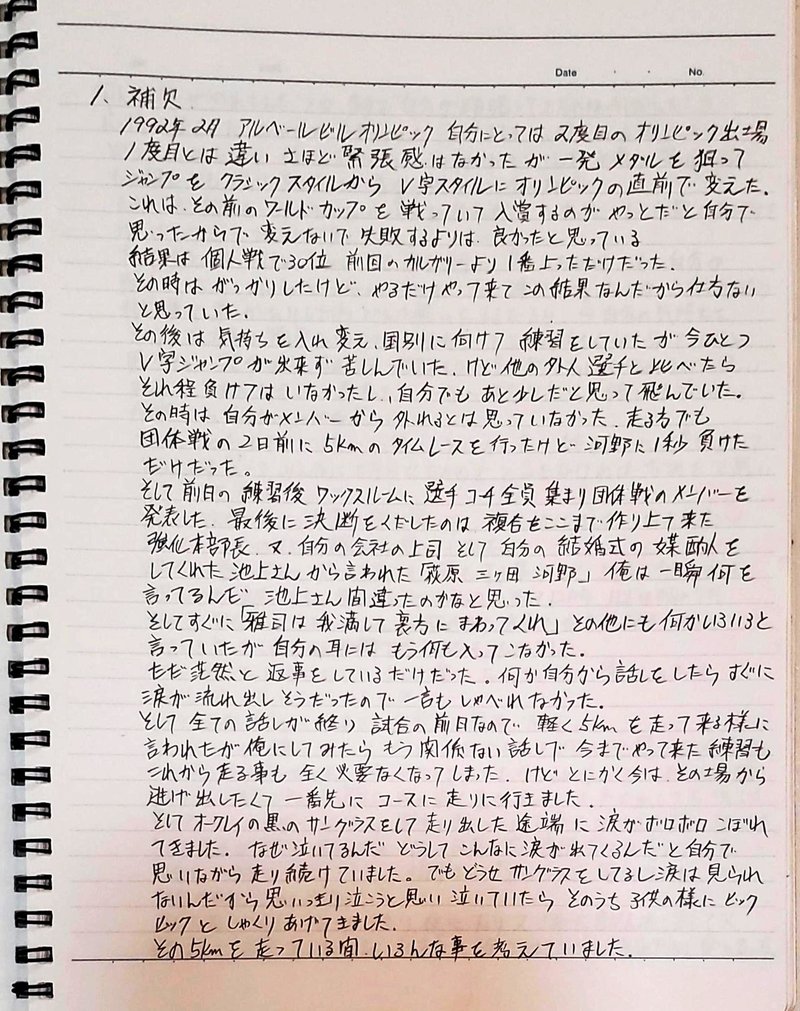 Date ・ ・ No.
1、補欠
1992年2月 アルベールビルオリンピック 自分にとっては2度目のオリンピック出場
1度目とは違いさほど緊張感はなかったが一発メダルを狙って
ジャンプをクラシックスタイルからV字スタイルにオリンピックの直前で変えた。
これは、その前のワールドカップを戦っていて入賞するのがやっとだと自分で
思ったからで変えないで失敗するよりは良かったと思っている
結果は個人戦で30位 前回のカルガリーより1番上っただけだった。
その時はがっかりしたけど、やるだけやって来てこの結果なんだから仕方ない
と思っていた。
その後は気持ちを入れ変え、国別に向けて練習をしていたが今ひとつ
V字ジャンプが出来ず苦しんでいた。けど他の外人選手と比べたら
それ程負けてはいなかったし、自分でもあと少しだと思って飛んでいた。
その時は自分がメンバーから外れるとは思っていなかった。走る方でも
団体戦の2日前に5kmのタイムレースを行ったけど河野に1秒負けた
だけだった。
そして前日の練習後ワックスルームに選手コーチ全員集まり団体戦のメンバーを
発表した。最後に決断をくだしたのは複合をここまで作り上て来た
強化本部長、又、自分の会社の上司そして自分の結婚式の媒酌人を
してくれた池上さんから言われた「荻原 三ヶ田 河野」俺は一瞬何を
言ってるんだ 池上さん間違ったのかなと思った。
そしてすぐに「雅司は我満して裏方にまわってくれ」その他にも何かいろいろと
言っていたが自分の耳にはもう何も入ってこなかった。
ただ茫然と返事をしているだけだった。何か自分から話しをしたらすぐに
涙が流れ出しそうだったので一言もしゃべれなかった。
そして全ての話しが終り 試合の前日なので軽く5kmを走って来る様に
言われたが俺にしてみたらもう関係ない話しで今までやって来た練習も
これから走る事も全く必要なくなってしまった。けどとにかく今は、その場から
逃げ出したくて一番先にコースに走りに行きました。
そしてオークレイの黒のサングラスをして走り出した途端に涙がボロボロこぼれ
てきました。なぜ泣いてるんだ どうしてこんなに涙が出てくるんだと自分で
思いながら走り続けていました。でもどうせサングラスをしてるし涙は見られ
ないんだから思いっきり泣こうと思い泣いていたら そのうち子供の様にヒック
ヒックとしゃくりあげてきました。
その5kmを走っている間、いろんな事を考えていました。